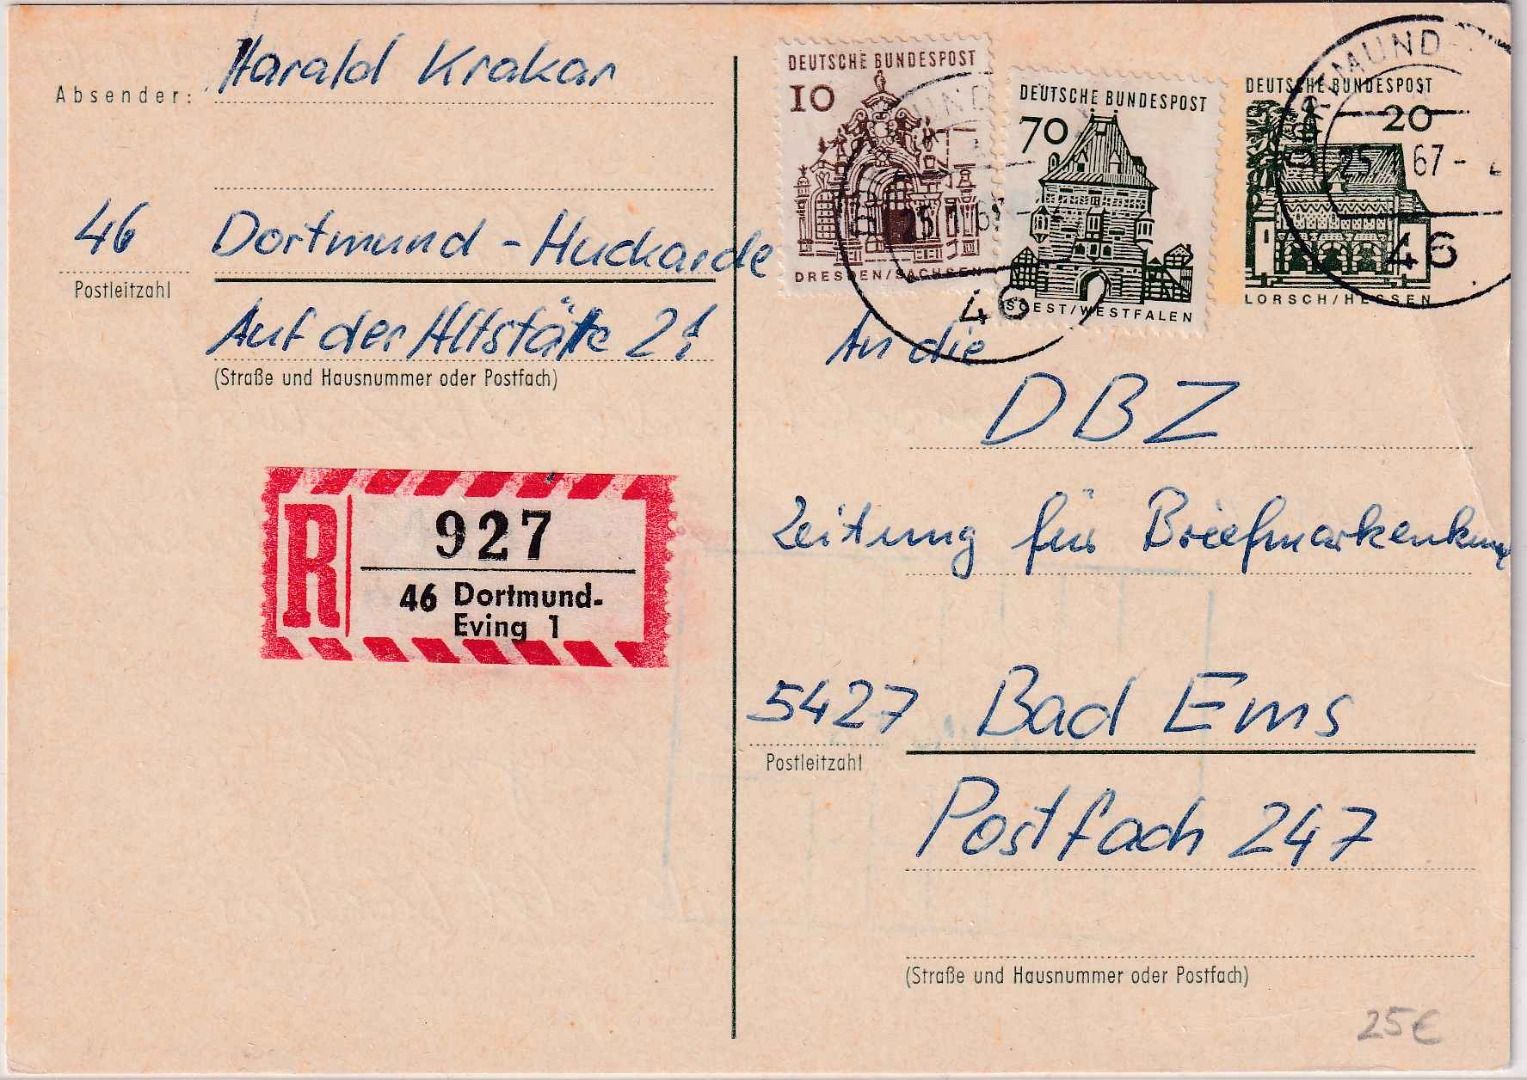 Absender: Harald Krakar
46 Dortmund - Huckarde
Postleitzahl
Auf der Altstätte 21
(Straße und Hausnummer oder Postfach)
R 927
46 Dortmund-
Eving 1
DEUTSCHE BUNDESPOST
10
DRESDEN/SACHSEN
DEUTSCHE BUNDESPOST
70
SOEST/WESTFALEN
DEUTSCHE BUNDESPOST
20
LORSCH/HESSEN
46
DORTMUND
67
46
An die
DBZ
Zeitung für Briefmarkenkunde
5427 Bad Ems
Postleitzahl
Postfach 247
(Straße und Hausnummer oder Postfach)
25€